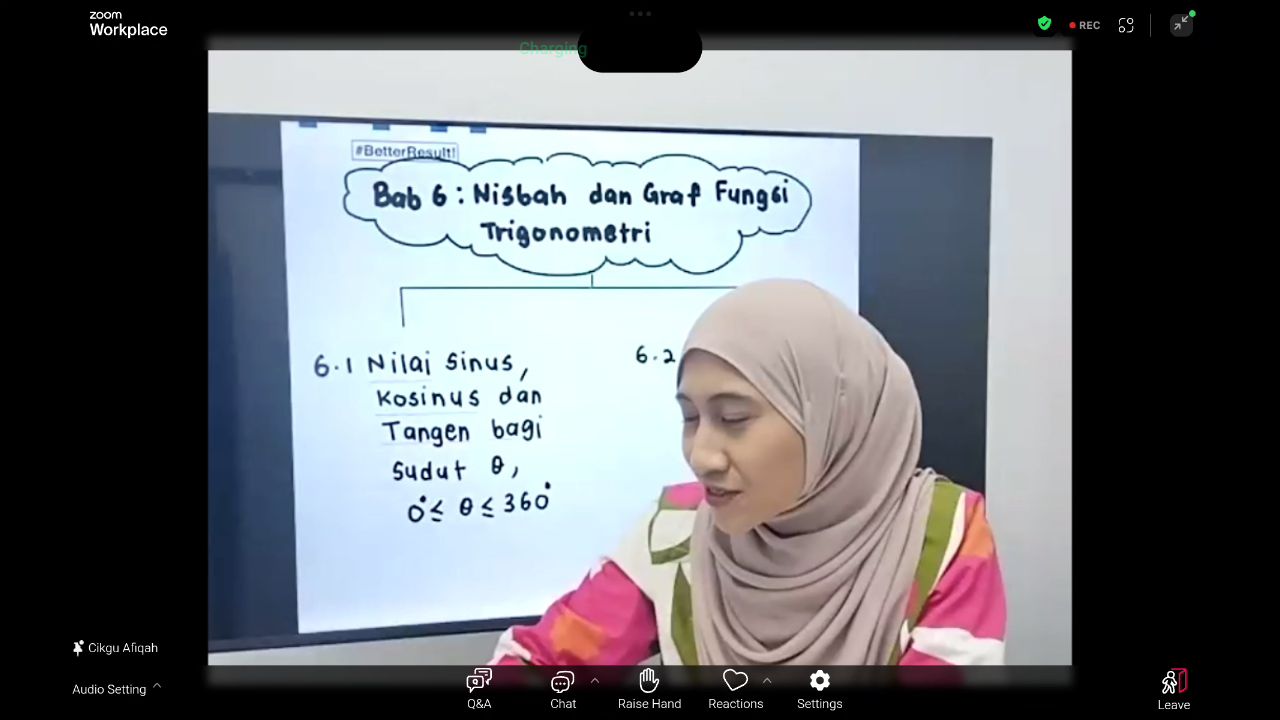 zoom
Workplace
REC
Charging
#BetterResult!
Bab 6 : Nisbah dan Graf Fungsi
Trigonometri
6.1 Nilai Sinus,
Kosinus dan
Tangen bagi
Sudut θ,
0° ≤ θ ≤ 360°
6.2
Cikgu Afiqah
Audio Setting
Q&A
Chat
Raise Hand
Reactions
Settings
Leave